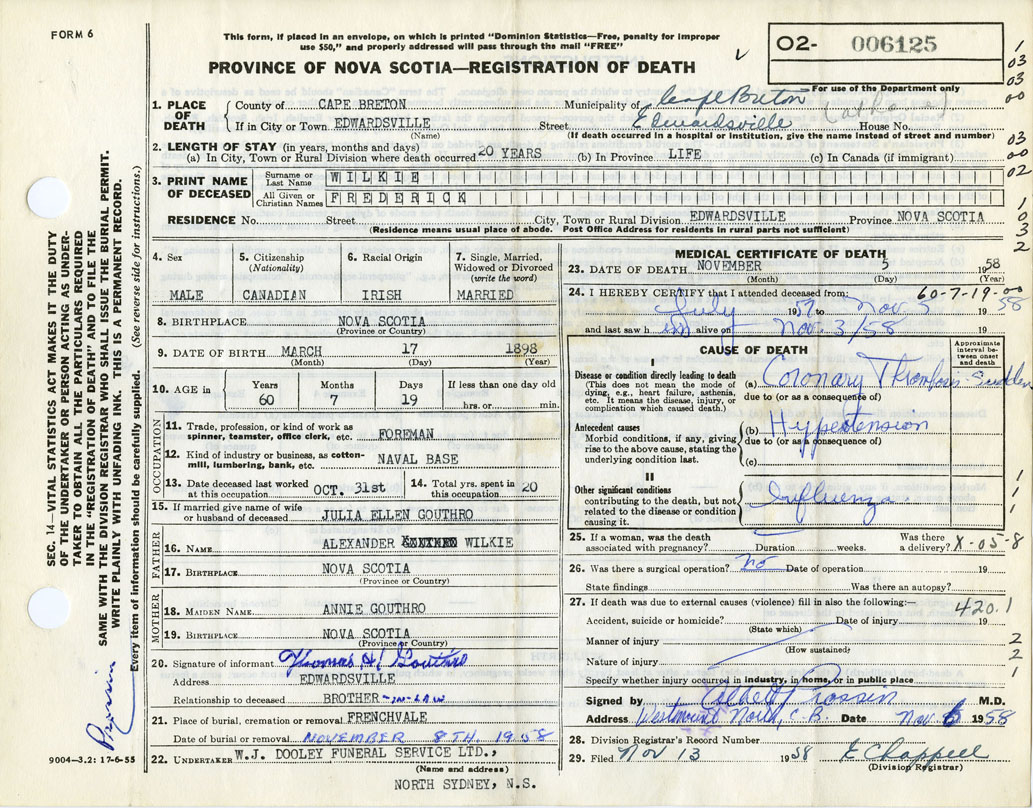 FORM 6
This form, if placed in an envelope, on which is printed "Dominion Statistics—Free, penalty for improper
use $50," and properly addressed will pass through the mail "FREE"
PROVINCE OF NOVA SCOTIA—REGISTRATION OF DEATH
O2- 006125
For use of the Department only
1. PLACE OF DEATH
County of CAPE BRETON Municipality of Cape Breton
If in City or Town EDWARDSVILLE Street Edwardsville House No.
(Name) (If death occurred in a hospital or institution, give the name instead of street and number)
2. LENGTH OF STAY (in years, months and days)
(a) In City, Town or Rural Division where death occurred 20 YEARS (b) In Province LIFE (c) In Canada (if immigrant)
3. PRINT NAME OF DECEASED
Surname or Last Name WILKIE
All Given or Christian Names FREDERICK
RESIDENCE No. Street City, Town or Rural Division EDWARDSVILLE Province NOVA SCOTIA
(Residence means usual place of abode. Post Office Address for residents in rural parts not sufficient)
4. Sex
MALE
5. Citizenship
(Nationality)
CANADIAN
6. Racial Origin
IRISH
7. Single, Married,
Widowed or Divorced
(write the word)
MARRIED
8. BIRTHPLACE NOVA SCOTIA
(Province or Country)
9. DATE OF BIRTH MARCH 17 1898
(Month) (Day) (Year)
10. AGE in
Years Months Days If less than one day old
60 7 19 hrs. or min.
OCCUPATION
11. Trade, profession, or kind of work as
spinner, teamster, office clerk, etc. FOREMAN
12. Kind of industry or business, as cotton-
mill, lumbering, bank, etc. NAVAL BASE
13. Date deceased last worked
at this occupation OCT. 31st
14. Total yrs. spent in
this occupation 20
15. If married give name of wife
or husband of deceased JULIA ELLEN GOUTHRO
FATHER
16. NAME ALEXANDER WILKIE
17. BIRTHPLACE NOVA SCOTIA
(Province or Country)
MOTHER
18. MAIDEN NAME ANNIE GOUTHRO
19. BIRTHPLACE NOVA SCOTIA
(Province or Country)
20. Signature of informant Thomas H Gouthro
Address EDWARDSVILLE
Relationship to deceased BROTHER-IN-LAW
21. Place of burial, cremation or removal FRENCHVALE
Date of burial or removal NOVEMBER 8TH. 1958
22. UNDERTAKER W.J. DOOLEY FUNERAL SERVICE LTD.,
(Name and address)
NORTH SYDNEY, N.S.
MEDICAL CERTIFICATE OF DEATH
23. DATE OF DEATH NOVEMBER 5 1958
(Month) (Day) (Year)
60-7-19-00
24. I HEREBY CERTIFY that I attended deceased from:
July 1957 to Nov. 5 1958
and last saw h im alive on Nov. 3/58 19
CAUSE OF DEATH
Approximate interval between onset and death
I
Disease or condition directly leading to death
(This does not mean the mode of
dying, e.g., heart failure, asthenia,
etc. It means the disease, injury, or
complication which caused death.)
(a) Coronary Thrombosis - Sudden
due to (or as a consequence of)
Antecedent causes
Morbid conditions, if any, giving
rise to the above cause, stating the
underlying condition last.
(b) Hypertension
due to (or as a consequence of)
(c)
II
Other significant conditions
contributing to the death, but not
related to the disease or condition
causing it.
Influenza
25. If a woman, was the death
associated with pregnancy? Duration weeks. Was there
a delivery? X-05-8
26. Was there a surgical operation? no Date of operation 19
State findings Was there an autopsy?
27. If death was due to external causes (violence) fill in also the following:—
420.1
Accident, suicide or homicide? Date of injury 19
(State which)
Manner of injury
(How sustained)
Nature of injury
Specify whether injury occurred in industry, in home, or in public place
Signed by M.D.
Address Westmount North, C.B. Date Nov. 6 1958
28. Division Registrar's Record Number
29. Filed Nov 13 1958 E Chappell
(Division Registrar)
SEC. 14—VITAL STATISTICS ACT MAKES IT THE DUTY
OF THE UNDERTAKER OR PERSON ACTING AS UNDER-
TAKER TO OBTAIN ALL THE PARTICULARS REQUIRED
IN THE "REGISTRATION OF DEATH" AND TO FILE THE
SAME WITH THE DIVISION REGISTRAR WHO SHALL ISSUE THE BURIAL PERMIT.
WRITE PLAINLY WITH UNFADING INK. THIS IS A PERMANENT RECORD.
Every item of information should be carefully supplied. (See reverse side for instructions.)
9004—3.2: 17-6-55
1
03
03
00
03
00
02
1
0
3
2
1
1
1
2
2
1